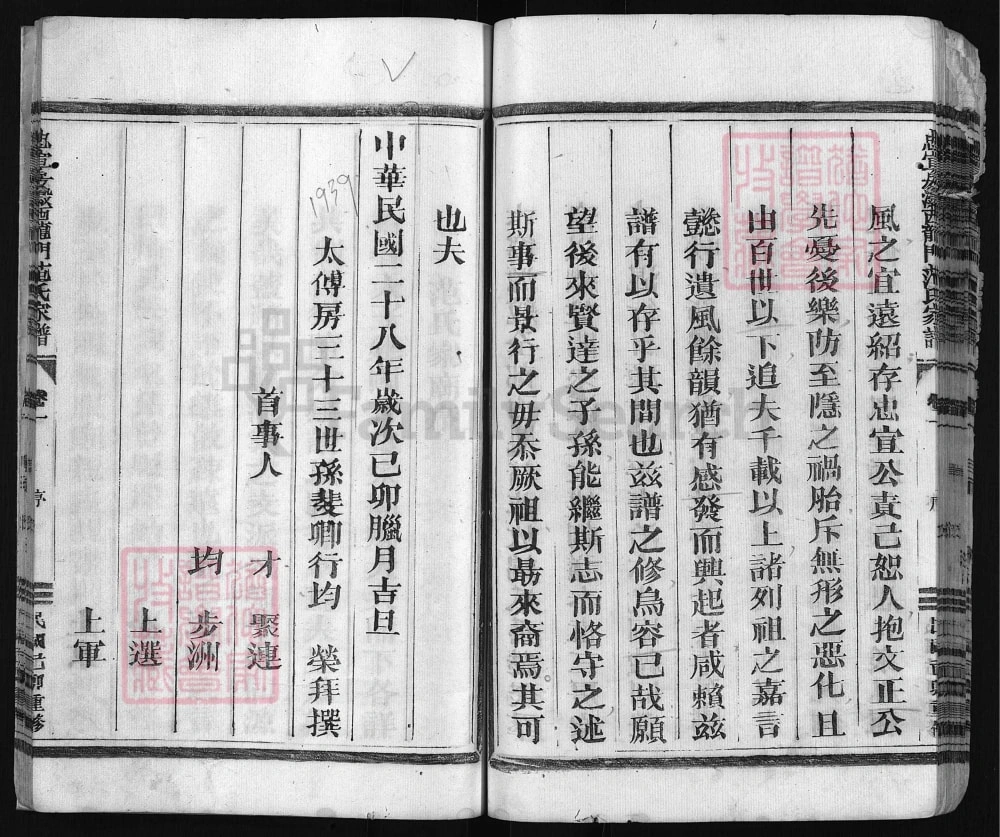 風之宜遠紹存忠宣公責己恕人抱文正公
先憂後樂防至隱之禍胎斥無形之惡化且
由百世以下追夫千載以上諸列祖之嘉言
懿行遺風餘韻猶有感發而興起者咸賴茲
譜有以存乎其間也茲譜之修烏容已哉願
望後來賢達之子孫能繼斯志而恪守之述
斯事而景行之毋忝厥祖以勗來裔焉其可
也夫
中華民國二十八年歲次己卯臘月吉旦
1939
太傅房三十三世孫斐卿行均 榮拜撰
首事人 才 聚連
均 步洲
上選
上軍
龍門范氏家譜 卷一 序 民國己卯重修
FamilySearch